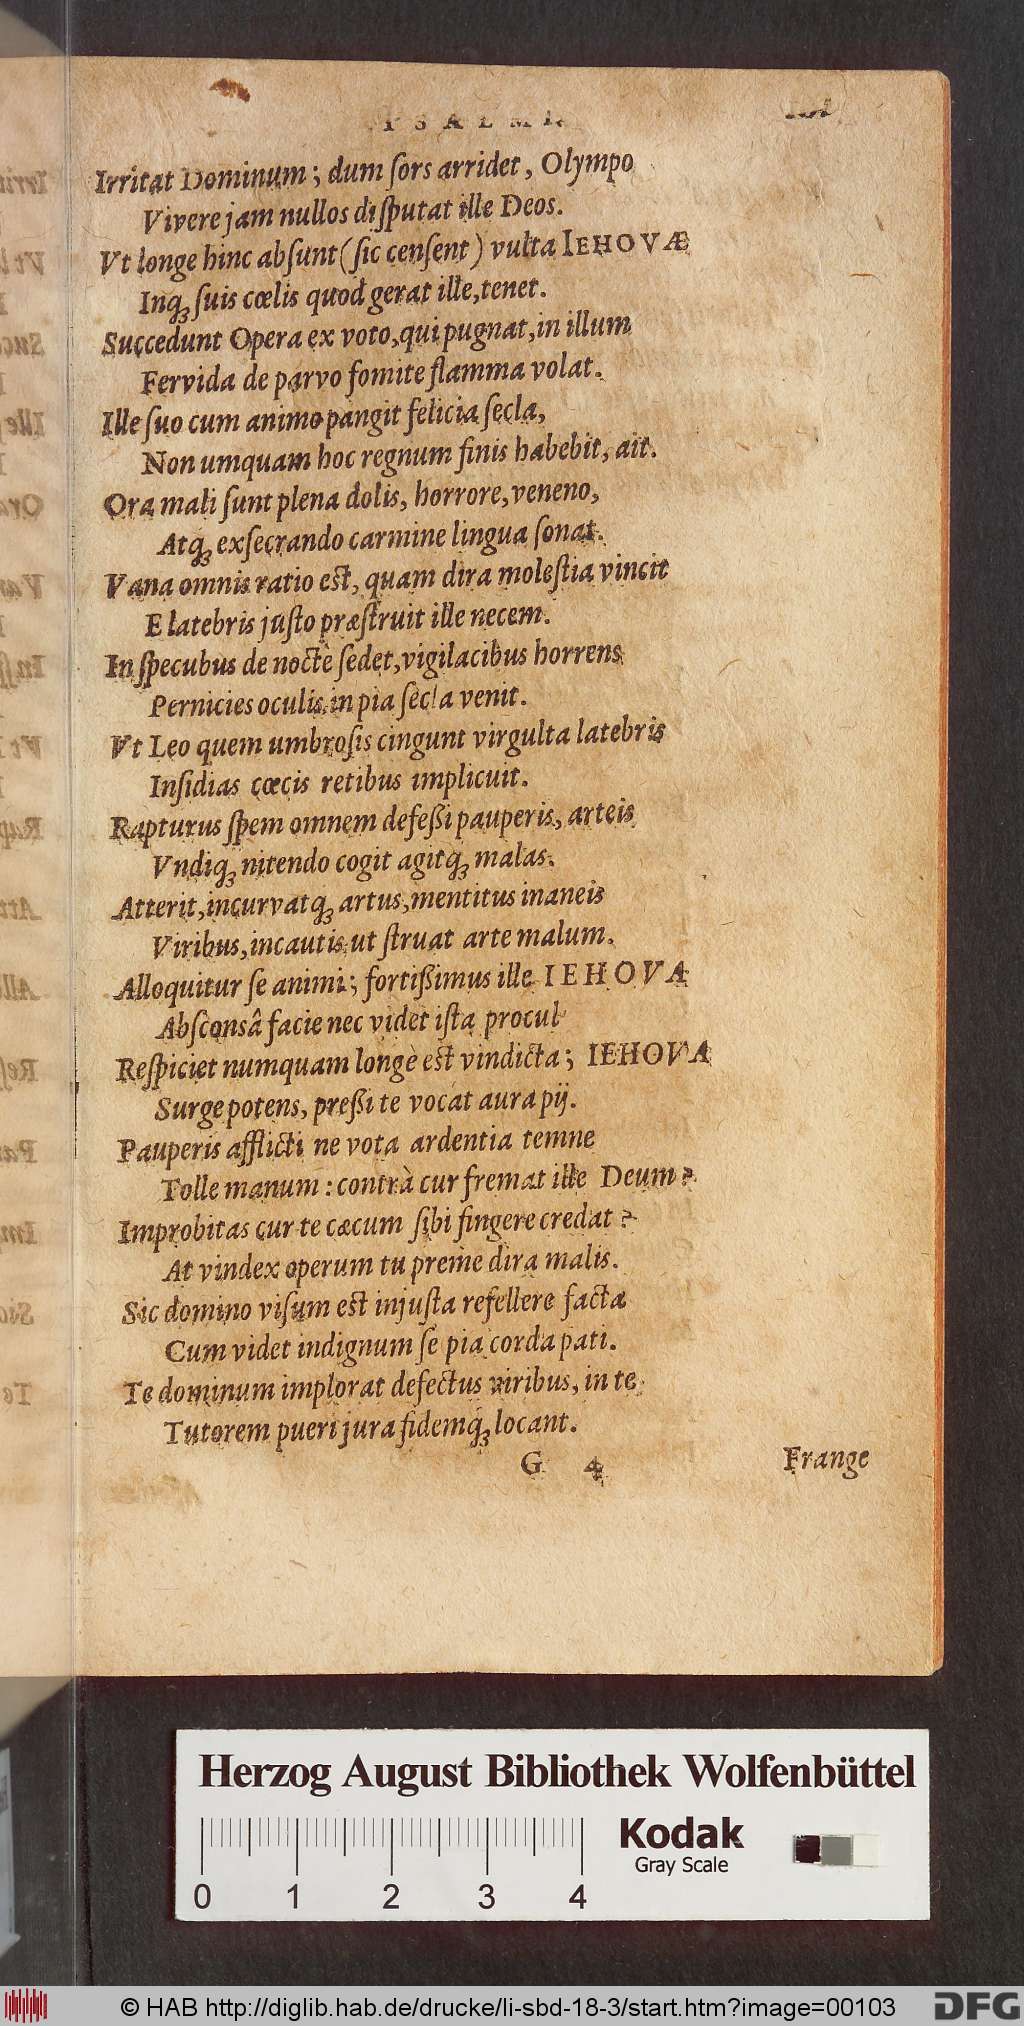 PSALMI.
Irritat Dominum; dum ſors arridet, Olympo
Vivere jam nullos diſputat ille Deos.
Vt longe hinc abſunt (ſic cenſent) vulta IEHOVÆ
Inq́ꝫ ſuis cœlis quod gerat ille, tenet.
Succedunt Opera ex voto, qui pugnat, in illum
Fervida de parvo fomite flamma volat.
Ille ſuo cum animo pangit felicia ſecla,
Non umquam hoc regnum finis habebit, ait.
Ora mali ſunt plena dolis, horrore, veneno,
Atq́ꝫ exſecrando carmine lingua ſonat.
Vana omnis ratio eſt, quam dira moleſtia vincit
E latebris juſto præſtruit ille necem.
In ſpecubus de nocte ſedet, vigilacibus horrens
Pernicies oculis, in pia ſecla venit.
Vt Leo quem umbroſis cingunt virgulta latebris
Inſidias cœcis retibus implicuit.
Rapturus ſpem omnem defeßi pauperis, arteis
Vndiq́ꝫ nitendo cogit agitq́ꝫ malas.
Atterit, incurvatq́ꝫ artus, mentitus inaneis
Viribus, incautis ut ſtruat arte malum.
Alloquitur ſe animi; fortißimus ille IEHOVA
Abſconsâ facie nec videt iſta procul
Reſpiciet numquam longè eſt vindicta; IEHOVA
Surge potens, preßi te vocat aura pij.
Pauperis afflicti ne vota ardentia temne
Tolle manum: contrà cur fremat ille Deum?
Improbitas cur te cæcum ſibi fingere credat?
At vindex operum tu preme dira malis.
Sic domino viſum est injuſta refellere facta
Cum videt indignum ſe pia corda pati.
Te dominum implorat defectus viribus, in te
Tutorem pueri jura fidemq́ꝫ locant.
G 4 Frange
Herzog August Bibliothek Wolfenbüttel
Kodak
Gray Scale
0 1 2 3 4
© HAB http://diglib.hab.de/drucke/li-sbd-18-3/start.htm?image=00103
DFG